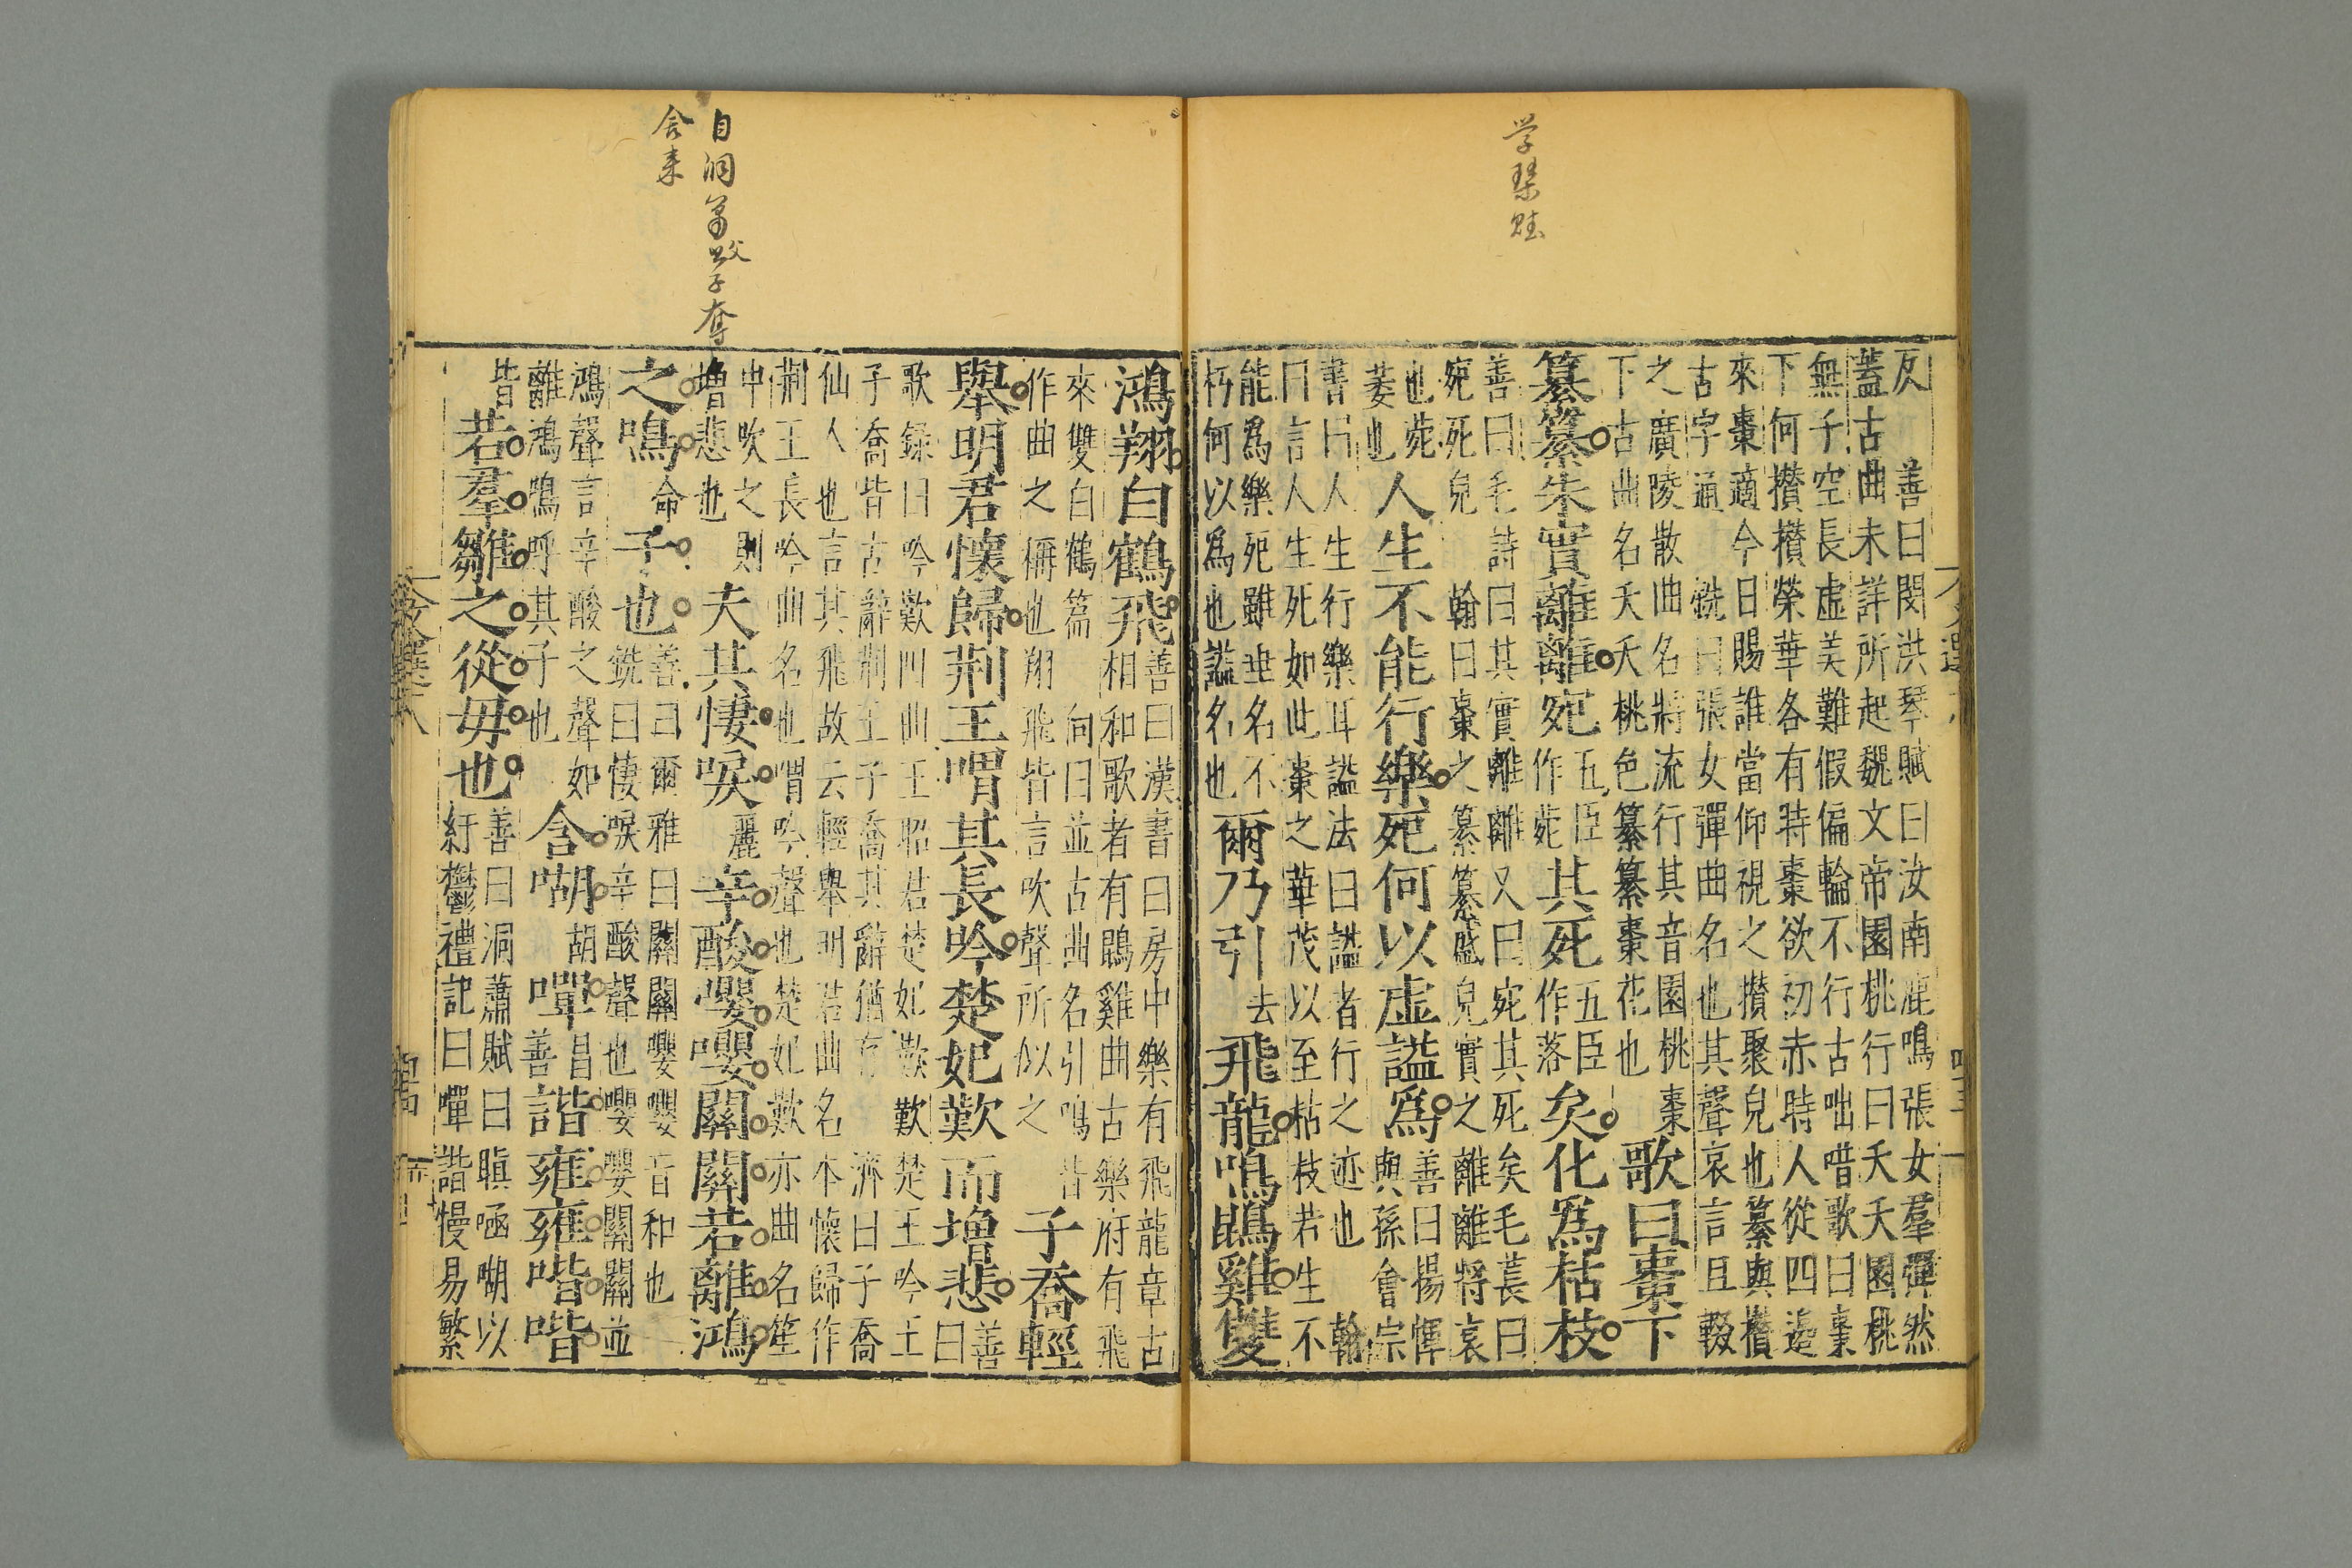 学琴賦
反　善曰閔洪琴賦曰汝南鹿鳴張女羣彈然
蓋古曲未詳所起魏文帝園桃行曰夭夭園桃
無子空長虛美難假偏輪不行古咄唶歌曰棗
下何攢攢榮華各有時棗欲初赤時人從四邊
來棗適今日賜誰當仰視之攢聚皃也纂與攢
古字通　銑曰張女彈曲名也其聲哀言且輟
之廣陵散曲名將流行其音園桃棗
下古曲名夭夭桃色纂纂棗花也
歌曰棗下
纂纂朱實離離宛五臣作菀其死五臣作落矣化爲枯枝
善曰毛詩曰其實離離又曰宛其死矣毛萇曰
宛死皃　翰曰棗之纂纂盛皃實之離離將哀
也菀萎也人生不能行樂死何以虛謚爲善曰揚惲與孫會宗
書曰人生行樂耳謚法曰謚者行之迹也　翰
曰言人生死如此棗之華茂以至枯枝若生不
能爲樂死雖垂名不
朽何以爲也謚名也
爾乃引去飛龍鳴鵾雞雙
自洞
含來
鴻翔白鶴飛
善曰漢書曰房中樂有飛龍章古
相和歌者有鵾雞曲古樂府有飛
來雙白鶴篇　向曰並古曲名引鳴皆
作曲之稱也翔飛皆言吹聲所似之
子喬輕
舉明君懷歸荆王喟其長吟楚妃歎而增悲善曰
歌録曰吟歎四曲王昭君楚妃歎楚王吟王
子喬皆古辭荆王子喬其辭猶存　濟曰子喬
仙人也言其飛故云輕舉明君曲名本懷歸作
荆王長吟曲名也喟吟聲也楚妃歎亦曲名笙
中吹之則
增悲也
夫其悽唳麗辛酸嚶嚶關關若離鴻
之鳴命子也
善曰爾雅曰關關嚶嚶音和也
銑曰悽唳辛酸聲也嚶嚶關關並
鴻聲言辛酸之聲如
離鴻鳴呼其子也
含嘲胡嘽昌善諧雍雍喈喈
皆若羣雛之從毋也
善曰洞蕭賦曰瞋㖤嘲以
紆鬱禮記曰嘽諧慢易繁